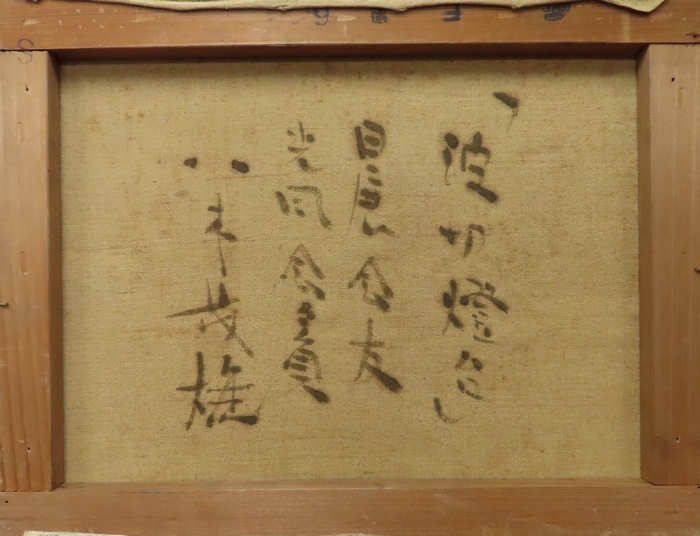 「波切燈台」
日展会友
光風会員
八木茂雄